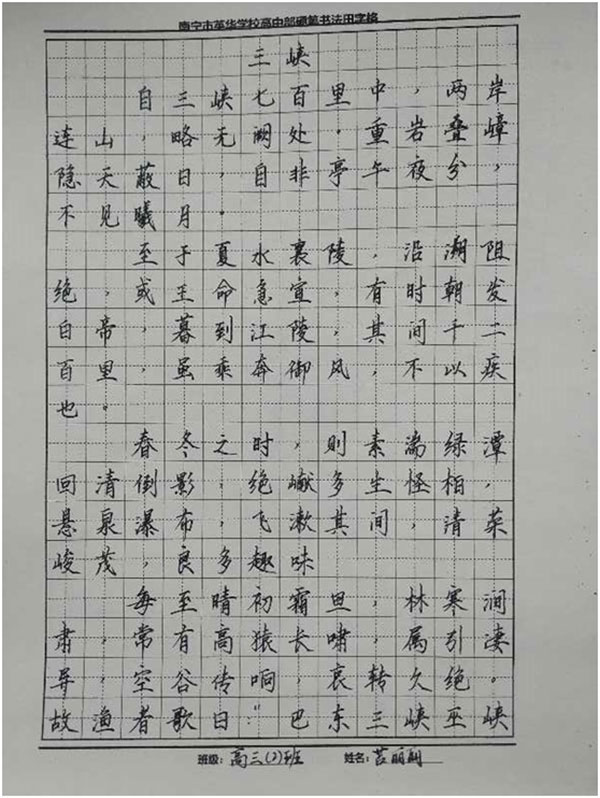 南宁市英华学校高中部硬笔书法田字格
三峡
自三峡七百里中，两岸
连山，略无阙处。重岩叠嶂，
隐天蔽日，自非亭午夜分，
不见曦月。
至于夏水襄陵，沿溯阻
绝，或王命急宣，有时朝发
白帝，暮到江陵，其间千二
百里，虽乘奔御风，不以疾
也。
春冬之时，则素湍绿潭，
回清倒影，绝巘多生怪柏，
悬泉瀑布，飞漱其间，清荣
峻茂，良多趣味
每至晴初霜旦，林寒涧
肃，常有高猿长啸，属引凄
异，空谷传响，哀转久绝。
故渔者歌曰："巴东三峡巫峡
班级：高三(2)班 姓名：